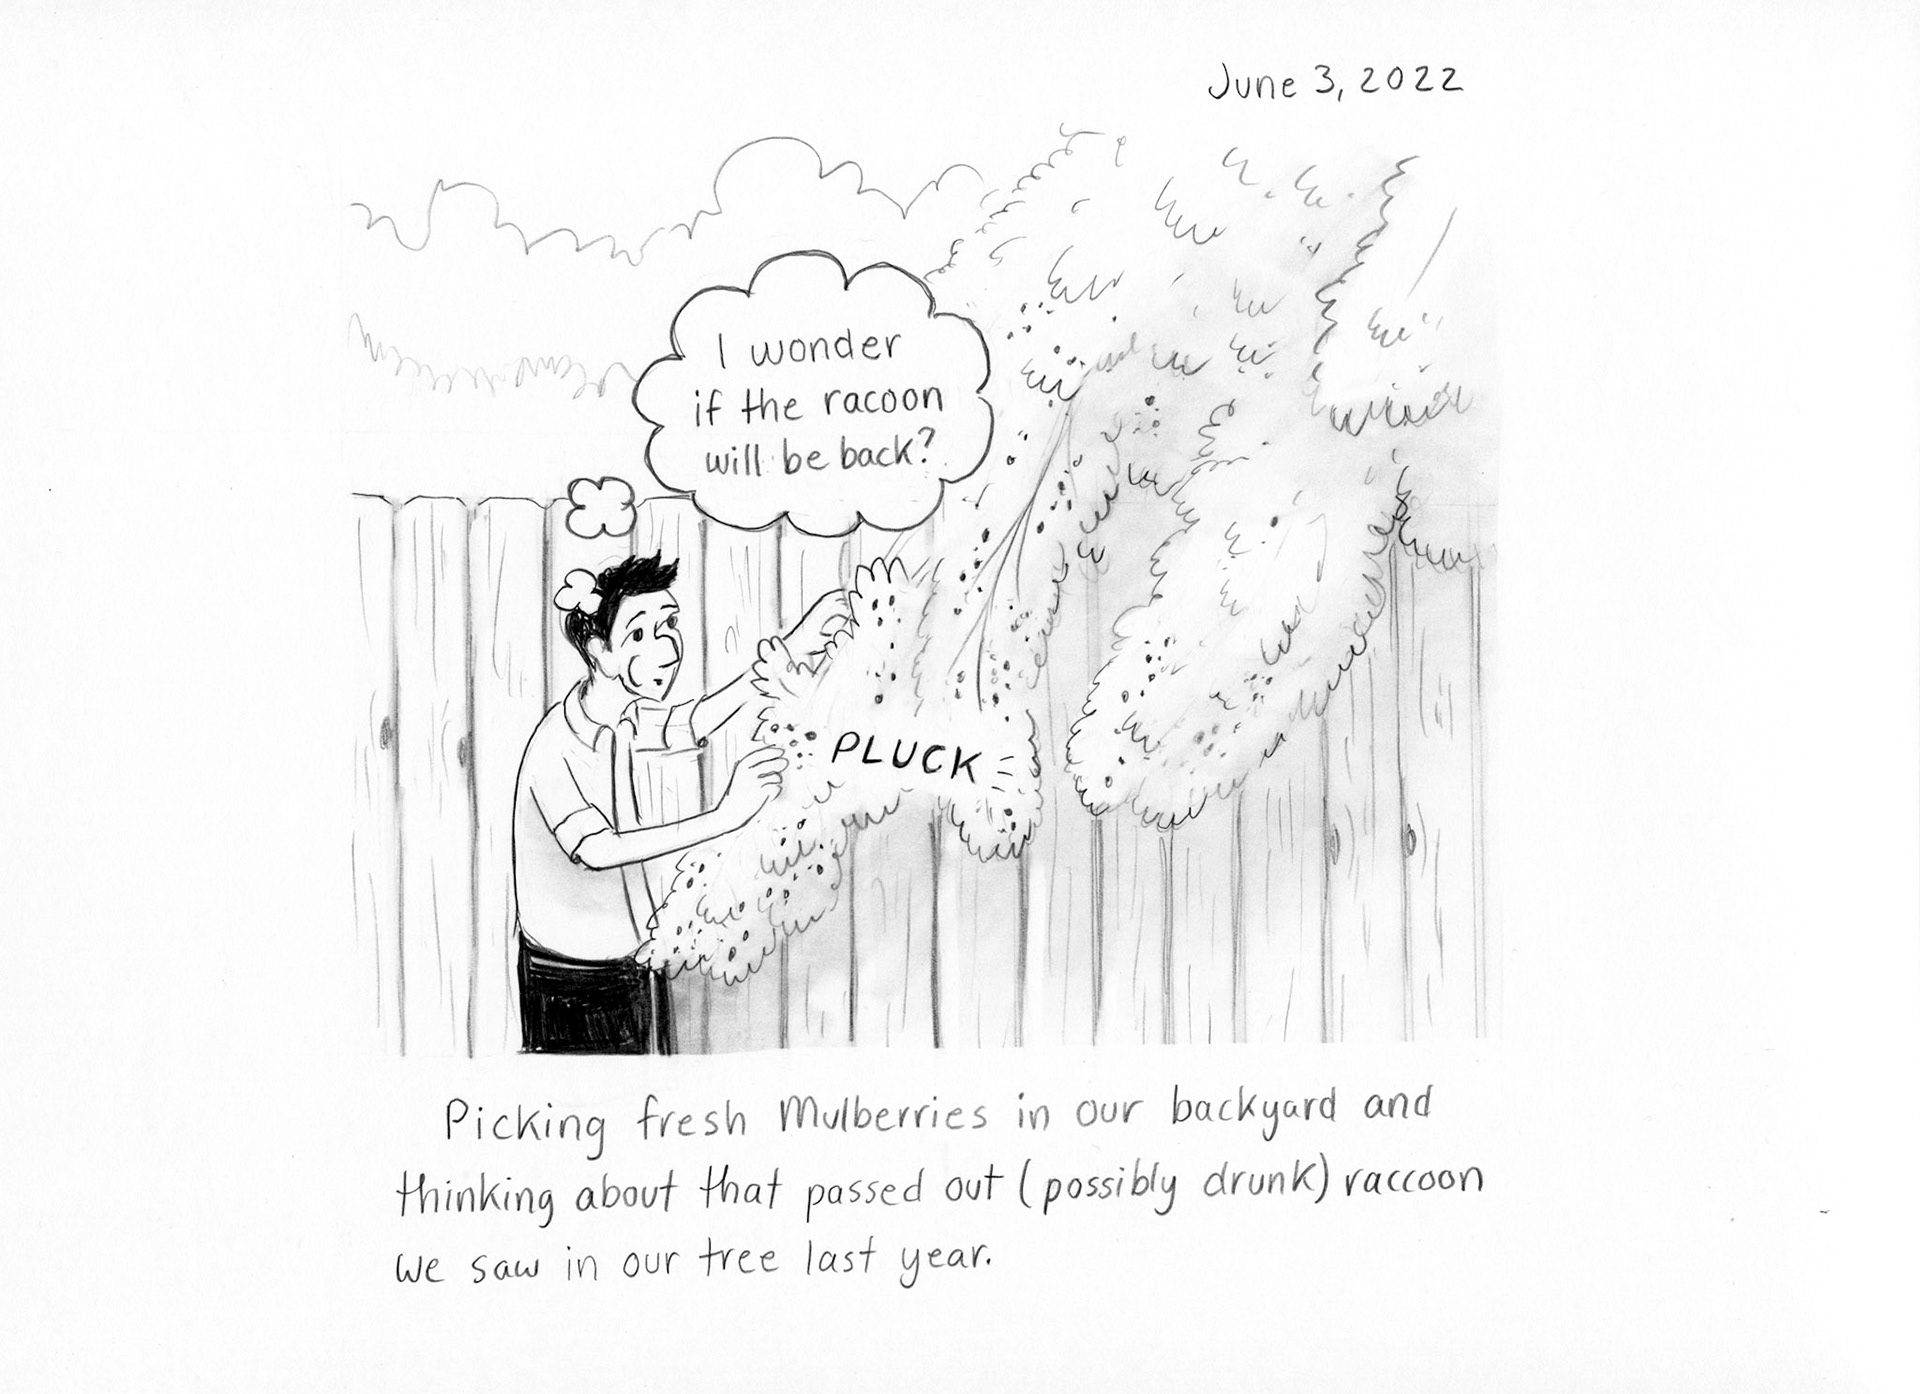 June 3, 2022
I wonder
if the racoon
will be back?
PLUCK
Picking fresh Mulberries in our backyard and
thinking about that passed out (possibly drunk) raccoon
we saw in our tree last year.